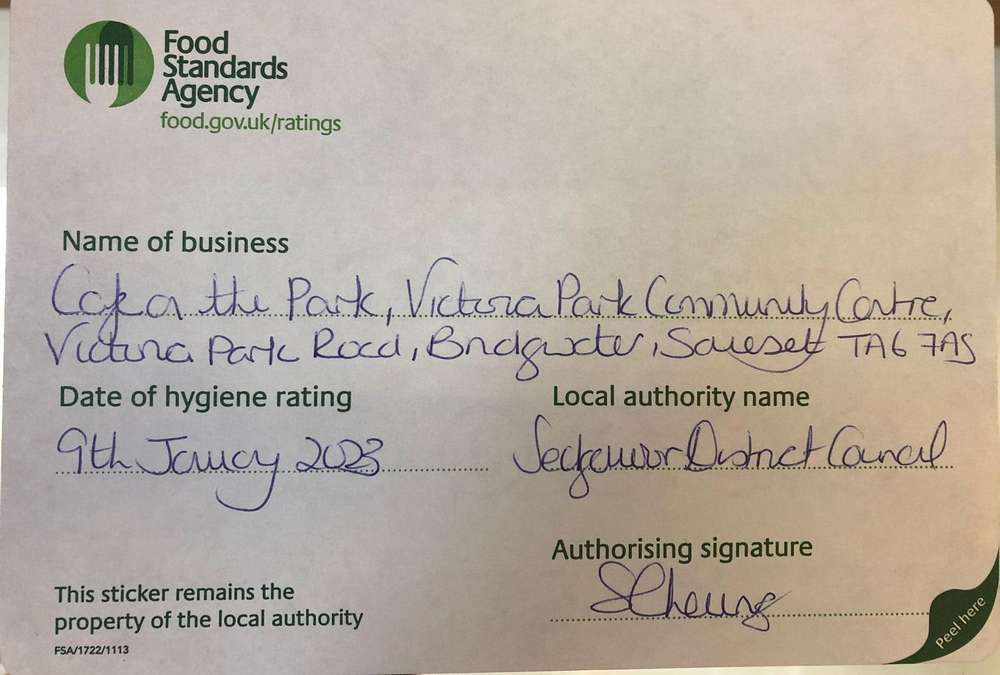 Food
Standards
Agency
food.gov.uk/ratings
Name of business
Cafe on the Park, Victoria Park Community Centre,
Victoria Park Road, Bridgwater, Somerset TA6 7AS
Date of hygiene rating
9th January 2023
Local authority name
Sedgemoor District Council
Authorising signature
SCheung
This sticker remains the
property of the local authority
FSA/1722/1113
Peel here